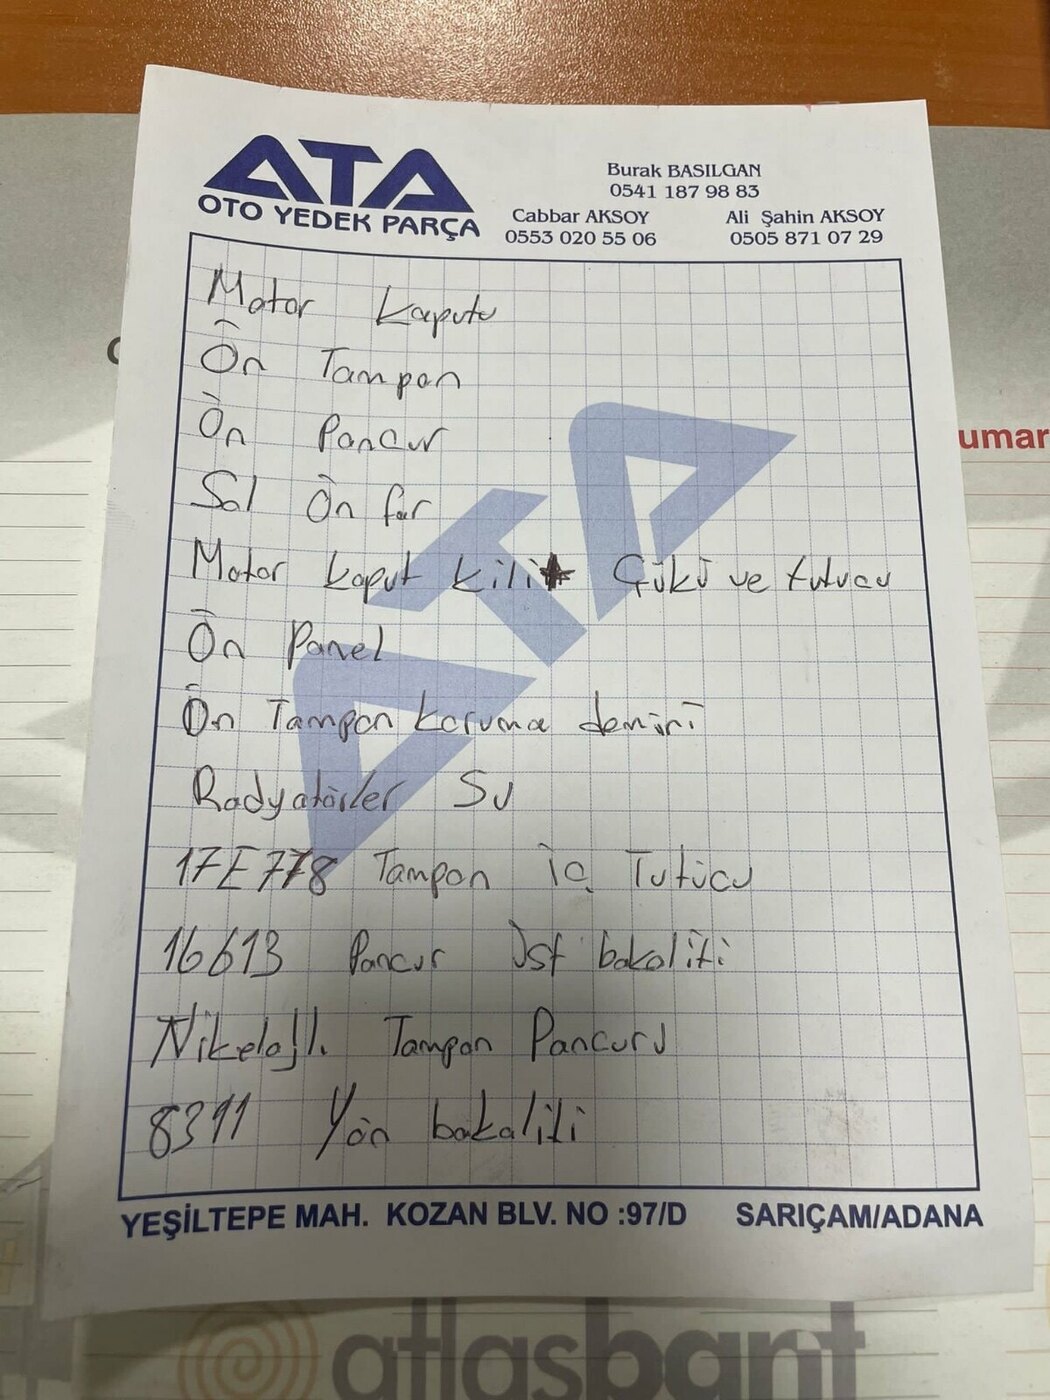 ATA
OTO YEDEK PARÇA
Burak BASILGAN
0541 187 98 83
Cabbar AKSOY
0553 020 55 06
Ali Şahin AKSOY
0505 871 07 29
Motor Kaputu
Ön Tampon
Ön Pancur
Sol Ön far
Motor kaput kilit Çükü ve tutucu
Ön Panel
Ön Tampon koruma demiri
Radyatörler Su
17E778 Tampon iç Tutucu
16613 Pancur Üst bakaliti
Nikelajlı Tampon Pancuru
8311 Yön bakaliti
ATA
YEŞİLTEPE MAH. KOZAN BLV. NO :97/D SARIÇAM/ADANA
umar
atlasbant